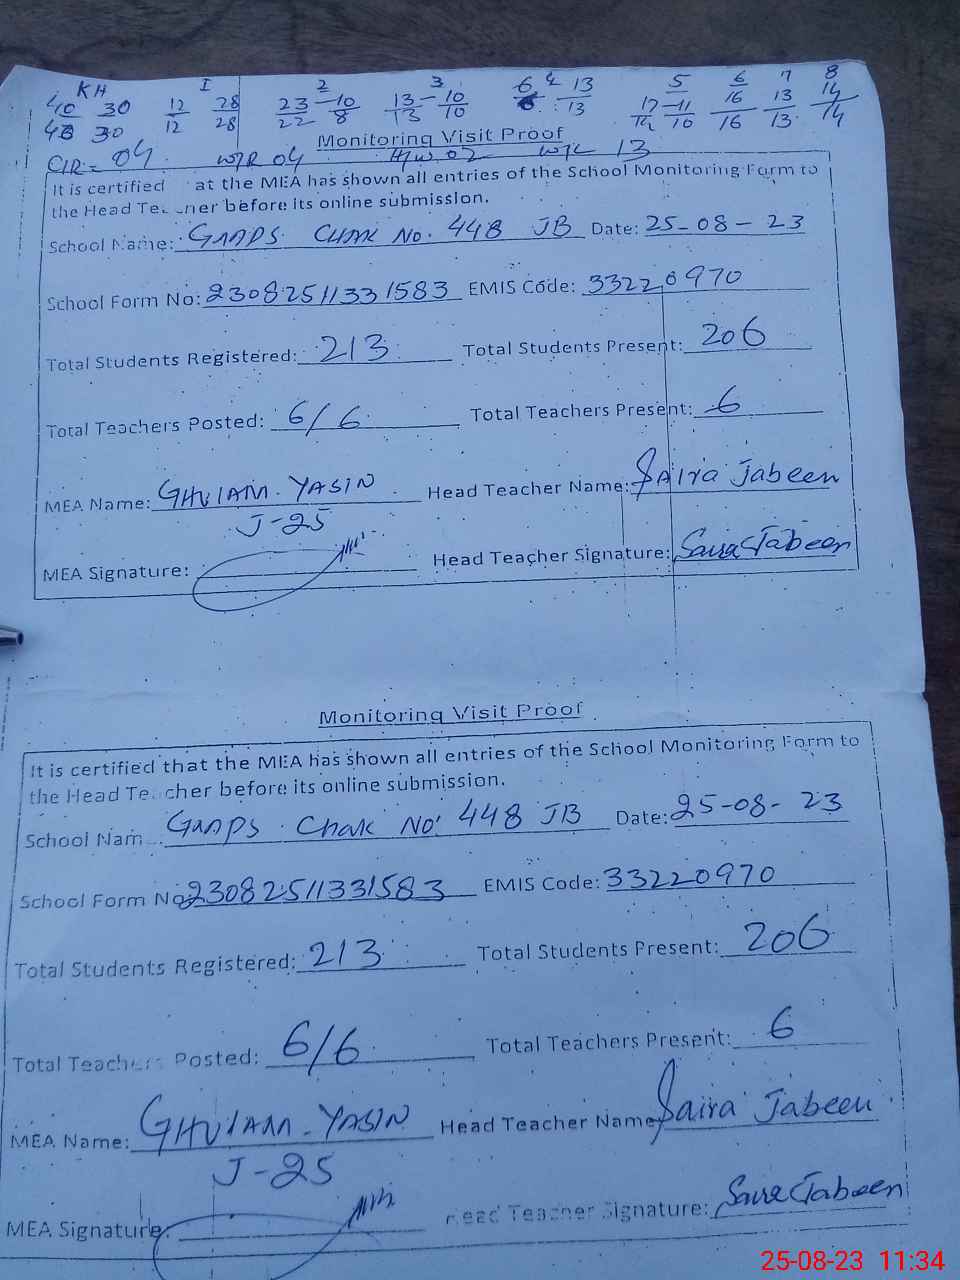 KH I 2 3 4 5 6 7 8
40 30 12 28 23 - 10 13 - 10 6 13 12 - 11 16 13 14
40 30 12 28 22 8 13 10 6 13 12 10 16 13 14
Monitoring Visit Proof
CIR = 04 W/R 04 H/W 02 W/C 13
It is certified at the MEA has shown all entries of the School Monitoring Form to
the Head Teacher before its online submission.
School Name: GMDPS. CHAK No. 448 JB Date: 25-08-23
School Form No: 23082511331583 EMIS Code: 33220970
Total Students Registered: 213 Total Students Present: 206
Total Teachers Posted: 6/6 Total Teachers Present: 6
MEA Name: GHULAM. YASIN Head Teacher Name: Saira Jabeen
J-25
MEA Signature: Head Teacher Signature: Saira Jabeen
Monitoring Visit Proof
It is certified that the MEA has shown all entries of the School Monitoring Form to
the Head Teacher before its online submission.
School Nam GMDPS. Chak No. 448 JB Date: 25-08-23
School Form No 23082511331583 EMIS Code: 33220970
Total Students Registered: 213 Total Students Present: 206
Total Teachers Posted: 6/6 Total Teachers Present: 6
MEA Name: GHULAM. YASIN Head Teacher Name Saira Jabeen
J-25
MEA Signature: Head Teacher Signature: Saira Jabeen
25-08-23 11:34